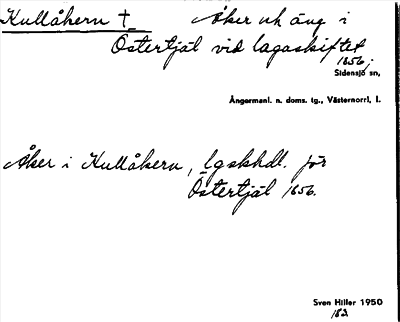 Kullåkern † Åker och äng i
Östertjäl vid lagaskiftet
1856.
Sidensjö sn,
Ångermanl. n. doms. tg., Västernorrl. l.
Åker i Kullåkern, lgskhdl. för
Östertjäl 1856.
Sven Hiller 1950
182